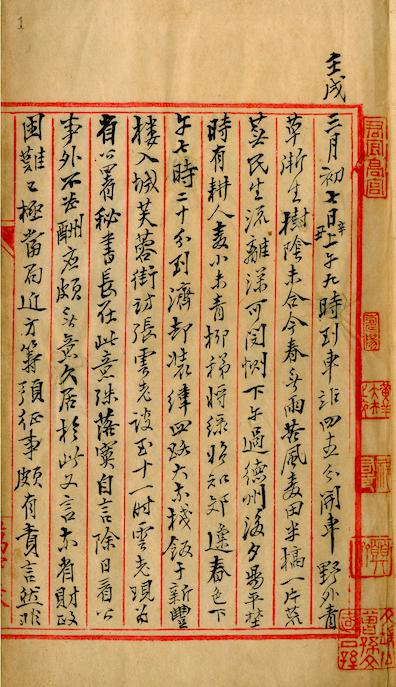 1
壬戌
三月初七日辛丑上午九時到車站四十五分開車野外青
草漸生樹陰未合今春無雨苦風麥田半槁一片荒
蕪民生流離深可閔惻下午過德州後夕陽平埜
時有耕人麥小未青柳稊將綠始知郊邊春色下
午七時二十分到濟卸裝緯四路大東棧飯于新豐
樓入城芙蓉街訪張雲老談至十一時雲老現為
省公署秘書長在此意殊落寞自言除日看公
事外不甚酬應頗無意久居於此又言東省財政
困難已極當局近方籌預征事頗有責言然非